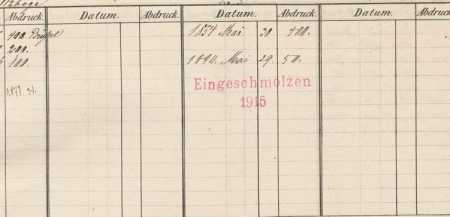 Abdruck. Datum. Abdruck. Datum. Abdruck. Datum. Abdruck
400
1854 Mai 20 400.
200.
100.
1890. Mai 29 50.
Eingeschmolzen
1915